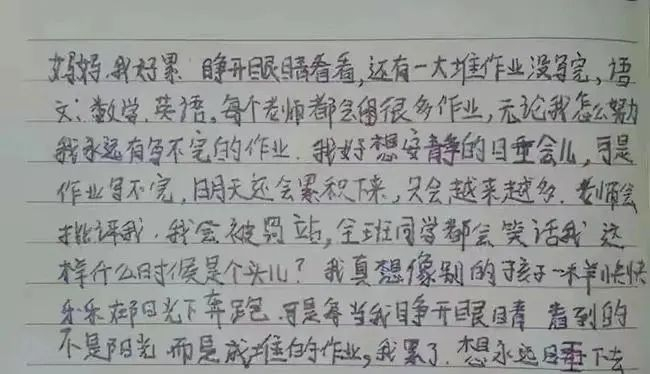 妈妈，我好累 睁开眼睛看看，还有一大堆作业没写完，语
文、数学、英语。每个老师都会留很多作业，无论我怎么努
我永远有写不完的作业．我好想安静的睡会儿，可是
作业写不完，明天还会累积下来，只会越来越多．老师会
批评我．我会被罚站，全班同学都会笑话我 这
样什么时候是个头儿？我真想像别的孩子一样快快
乐乐在阳光下奔跑．可是每当我睁开眼睛 看到的
不是阳光 而是成堆的作业，我累了．想永远睡下去